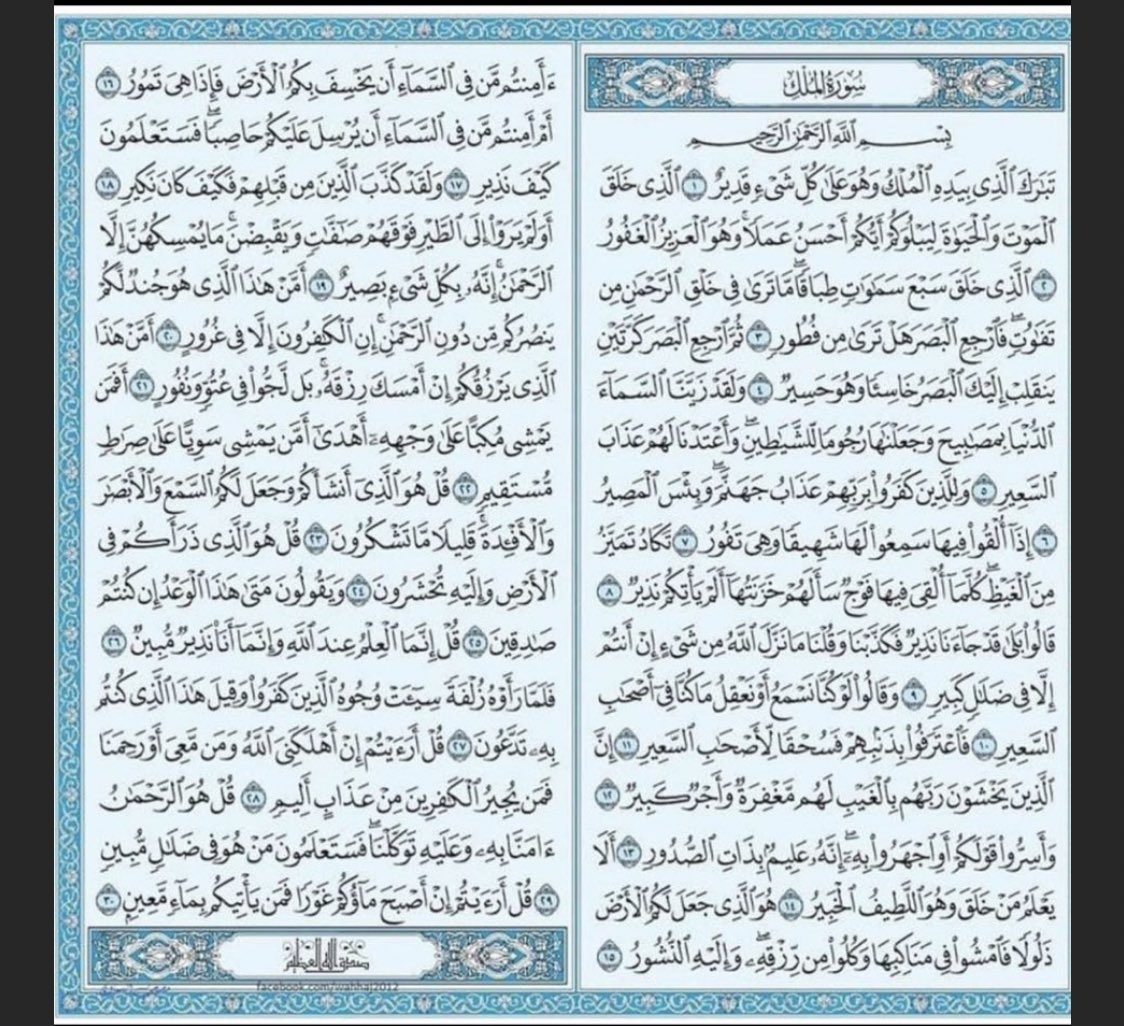 سُورَةُ الْمُلْكِ
بِسْمِ اللَّهِ الرَّحْمَٰنِ الرَّحِيمِ
تَبَٰرَكَ الَّذِى بِيَدِهِ الْمُلْكُ وَهُوَ عَلَىٰ كُلِّ شَىْءٍ قَدِيرٌ ١ الَّذِى خَلَقَ
الْمَوْتَ وَالْحَيَوٰةَ لِيَبْلُوَكُمْ أَيُّكُمْ أَحْسَنُ عَمَلًا ۚ وَهُوَ الْعَزِيزُ الْغَفُورُ
٢ الَّذِى خَلَقَ سَبْعَ سَمَٰوَٰتٍ طِبَاقًا ۖ مَّا تَرَىٰ فِى خَلْقِ الرَّحْمَٰنِ مِن
تَفَٰوُتٍ ۖ فَارْجِعِ الْبَصَرَ هَلْ تَرَىٰ مِن فُطُورٍ ٣ ثُمَّ ارْجِعِ الْبَصَرَ كَرَّتَيْنِ
يَنقَلِبْ إِلَيْكَ الْبَصَرُ خَاسِئًا وَهُوَ حَسِيرٌ ٤ وَلَقَدْ زَيَّنَّا السَّمَآءَ
الدُّنْيَا بِمَصَٰبِيحَ وَجَعَلْنَٰهَا رُجُومًا لِّلشَّيَٰطِينِ ۖ وَأَعْتَدْنَا لَهُمْ عَذَابَ
السَّعِيرِ ٥ وَلِلَّذِينَ كَفَرُوا۟ بِرَبِّهِمْ عَذَابُ جَهَنَّمَ ۖ وَبِئْسَ الْمَصِيرُ
٦ إِذَآ أُلْقُوا۟ فِيهَا سَمِعُوا۟ لَهَا شَهِيقًا وَهِىَ تَفُورُ ٧ تَكَادُ تَمَيَّزُ
مِنَ الْغَيْظِ ۖ كُلَّمَآ أُلْقِىَ فِيهَا فَوْجٌ سَأَلَهُمْ خَزَنَتُهَآ أَلَمْ يَأْتِكُمْ نَذِيرٌ ٨
قَالُوا۟ بَلَىٰ قَدْ جَآءَنَا نَذِيرٌ فَكَذَّبْنَا وَقُلْنَا مَا نَزَّلَ اللَّهُ مِن شَىْءٍ إِنْ أَنتُمْ
إِلَّا فِى ضَلَٰلٍ كَبِيرٍ ٩ وَقَالُوا۟ لَوْ كُنَّا نَسْمَعُ أَوْ نَعْقِلُ مَا كُنَّا فِىٓ أَصْحَٰبِ
السَّعِيرِ ١٠ فَاعْتَرَفُوا۟ بِذَنۢبِهِمْ فَسُحْقًا لِّأَصْحَٰبِ السَّعِيرِ ١١ إِنَّ
الَّذِينَ يَخْشَوْنَ رَبَّهُم بِالْغَيْبِ لَهُم مَّغْفِرَةٌ وَأَجْرٌ كَبِيرٌ ١٢
وَأَسِرُّوا۟ قَوْلَكُمْ أَوِ اجْهَرُوا۟ بِهِۦٓ ۖ إِنَّهُۥ عَلِيمٌۢ بِذَاتِ الصُّدُورِ ١٣ أَلَا
يَعْلَمُ مَنْ خَلَقَ وَهُوَ اللَّطِيفُ الْخَبِيرُ ١٤ هُوَ الَّذِى جَعَلَ لَكُمُ الْأَرْضَ
ذَلُولًا فَامْشُوا۟ فِى مَنَاكِبِهَا وَكُلُوا۟ مِن رِّزْقِهِۦ ۖ وَإِلَيْهِ النُّشُورُ ١٥
ءَأَمِنتُم مَّن فِى السَّمَآءِ أَن يَخْسِفَ بِكُمُ الْأَرْضَ فَإِذَا هِىَ تَمُورُ ١٦
أَمْ أَمِنتُم مَّن فِى السَّمَآءِ أَن يُرْسِلَ عَلَيْكُمْ حَاصِبًا ۖ فَسَتَعْلَمُونَ
كَيْفَ نَذِيرِ ١٧ وَلَقَدْ كَذَّبَ الَّذِينَ مِن قَبْلِهِمْ فَكَيْفَ كَانَ نَكِيرِ ١٨
أَوَلَمْ يَرَوْا۟ إِلَى الطَّيْرِ فَوْقَهُمْ صَٰٓفَّٰتٍ وَيَقْبِضْنَ ۚ مَا يُمْسِكُهُنَّ إِلَّا
الرَّحْمَٰنُ ۚ إِنَّهُۥ بِكُلِّ شَىْءٍۭ بَصِيرٌ ١٩ أَمَّنْ هَٰذَا الَّذِى هُوَ جُندٌ لَّكُمْ
يَنصُرُكُم مِّن دُونِ الرَّحْمَٰنِ ۚ إِنِ الْكَٰفِرُونَ إِلَّا فِى غُرُورٍ ٢٠ أَمَّنْ هَٰذَا
الَّذِى يَرْزُقُكُمْ إِنْ أَمْسَكَ رِزْقَهُۥ ۚ بَل لَّجُّوا۟ فِى عُتُوٍّ وَنُفُورٍ ٢١ أَفَمَن
يَمْشِى مُكِبًّا عَلَىٰ وَجْهِهِۦٓ أَهْدَىٰٓ أَمَّن يَمْشِى سَوِيًّا عَلَىٰ صِرَٰطٍ
مُّسْتَقِيمٍ ٢٢ قُلْ هُوَ الَّذِىٓ أَنشَأَكُمْ وَجَعَلَ لَكُمُ السَّمْعَ وَالْأَبْصَٰرَ
وَالْأَفْـِٔدَةَ ۖ قَلِيلًا مَّا تَشْكُرُونَ ٢٣ قُلْ هُوَ الَّذِى ذَرَأَكُمْ فِى
الْأَرْضِ وَإِلَيْهِ تُحْشَرُونَ ٢٤ وَيَقُولُونَ مَتَىٰ هَٰذَا الْوَعْدُ إِن كُنتُمْ
صَٰدِقِينَ ٢٥ قُلْ إِنَّمَا الْعِلْمُ عِندَ اللَّهِ وَإِنَّمَآ أَنَا۠ نَذِيرٌ مُّبِينٌ ٢٦
فَلَمَّا رَأَوْهُ زُلْفَةً سِيٓـَٔتْ وُجُوهُ الَّذِينَ كَفَرُوا۟ وَقِيلَ هَٰذَا الَّذِى كُنتُم
بِهِۦ تَدَّعُونَ ٢٧ قُلْ أَرَءَيْتُمْ إِنْ أَهْلَكَنِىَ اللَّهُ وَمَن مَّعِىَ أَوْ رَحِمَنَا
فَمَن يُجِيرُ الْكَٰفِرِينَ مِنْ عَذَابٍ أَلِيمٍ ٢٨ قُلْ هُوَ الرَّحْمَٰنُ
ءَامَنَّا بِهِۦ وَعَلَيْهِ تَوَكَّلْنَا ۖ فَسَتَعْلَمُونَ مَنْ هُوَ فِى ضَلَٰلٍ مُّبِينٍ
٢٩ قُلْ أَرَءَيْتُمْ إِنْ أَصْبَحَ مَآؤُكُمْ غَوْرًا فَمَن يَأْتِيكُم بِمَآءٍ مَّعِينٍۭ ٣٠
صدق الله العظيم
facebook.com/wahhaj2012